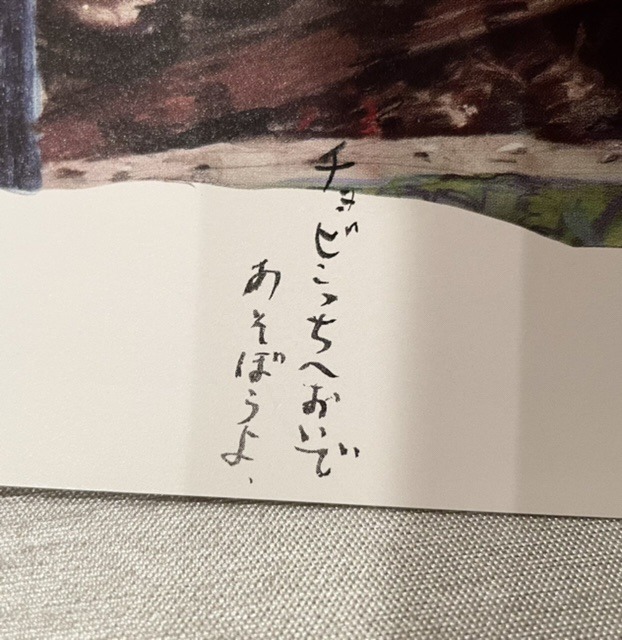 チョビこっちへおいで
あそぼうよ、